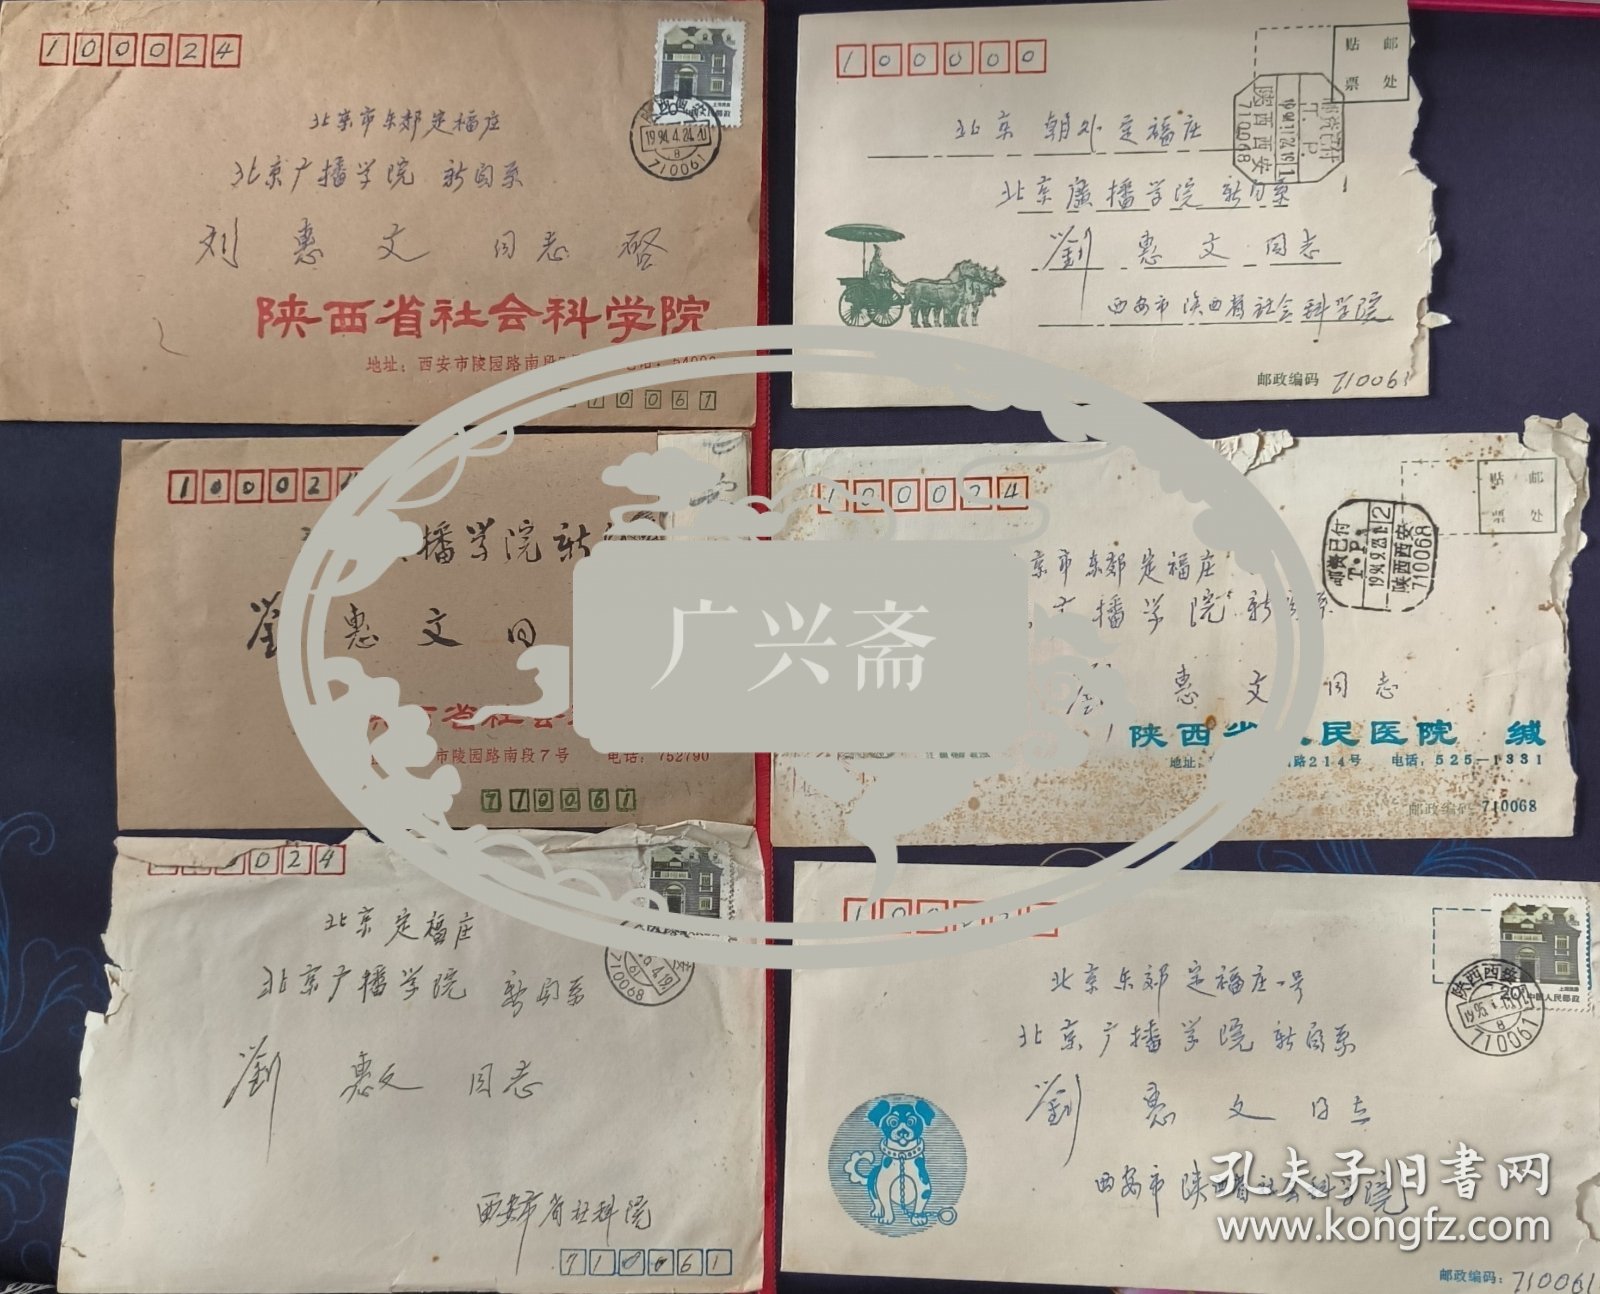 100024
北京市东郊定福庄
北京广播学院 新闻系
刘惠文 同志 启
陕西省社会科学院
地址：西安市陵园路南段
710061
中国人民邮政
1994.4.24
710061
100000
贴邮票处
邮资已付
T.P.
陕西西安
710068
北京 朝外定福庄
北京廣播学院 新闻系
劉惠文 同志
西安市陕西省社会科学院
邮政编码 710061
100024
播学院新
劉惠文 同
市陵园路南段7号 电话：752790
710061
100024
贴邮票处
邮资已付
T.P.
陕西西安
710068
京市东郊定福庄
播学院 新闻系
惠文 同志
陕西省人民医院 缄
地址： 路214号 电话：525-1331
邮政编码 710068
0024
北京定福庄
北京广播学院 新闻系
劉惠文 同志
西安市省社科院
710061
710068
北京东郊定福庄一号
北京广播学院新闻系
劉惠文 同志
西安市陕西省社会科学院
邮政编码：710061
陕西西安
710061
中国人民邮政
广兴斋
孔夫子旧书网
www.kongfz.com